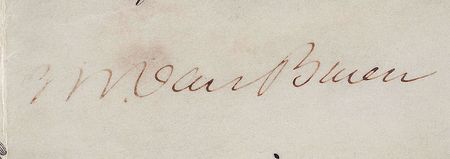 M. Van Buren